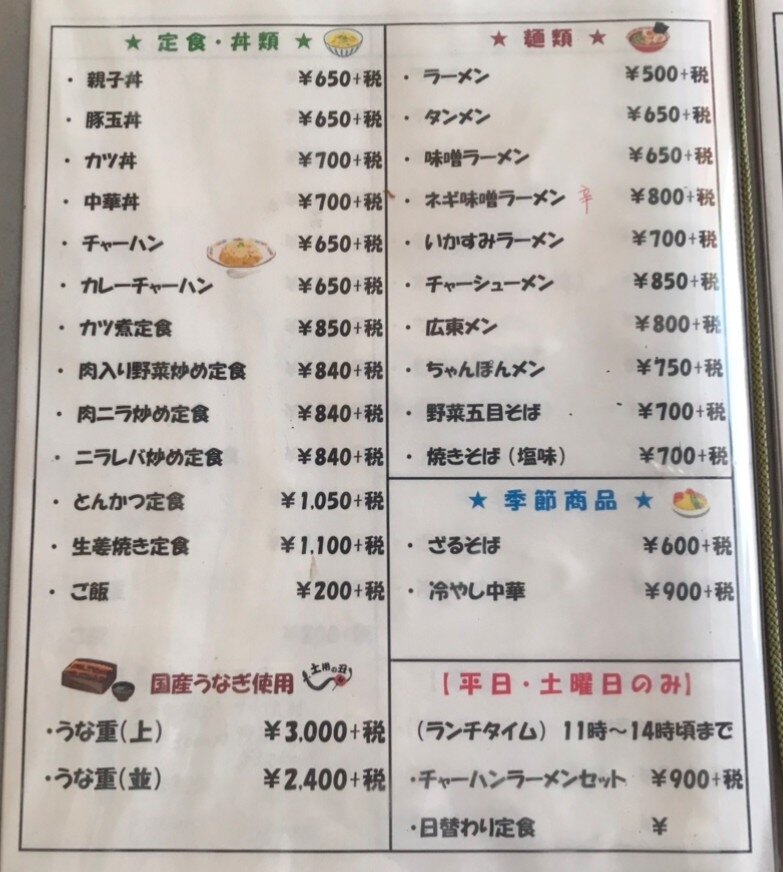 ★ 定食・丼類 ★
・ 親子丼 ¥650+税
・ 豚玉丼 ¥650+税
・ カツ丼 ¥700+税
・ 中華丼 ¥700+税
・ チャーハン ¥650+税
・ カレーチャーハン ¥650+税
・ カツ煮定食 ¥850+税
・ 肉入り野菜炒め定食 ¥840+税
・ 肉ニラ炒め定食 ¥840+税
・ ニラレバ炒め定食 ¥840+税
・ とんかつ定食 ¥1,050+税
・ 生姜焼き定食 ¥1,100+税
・ ご飯 ¥200+税
国産うなぎ使用 土用の丑
・うな重(上) ¥3,000+税
・うな重(並) ¥2,400+税
★ 麺類 ★
・ ラーメン ¥500+税
・ タンメン ¥650+税
・ 味噌ラーメン ¥650+税
・ ネギ味噌ラーメン 辛 ¥800+税
・ いかすみラーメン ¥700+税
・ チャーシューメン ¥850+税
・ 広東メン ¥800+税
・ ちゃんぽんメン ¥750+税
・ 野菜五目そば ¥700+税
・ 焼きそば(塩味) ¥700+税
★ 季節商品 ★
・ ざるそば ¥600+税
・ 冷やし中華 ¥900+税
【平日・土曜日のみ】
(ランチタイム) 11時～14時頃まで
・チャーハンラーメンセット ¥900+税
・日替わり定食 ¥